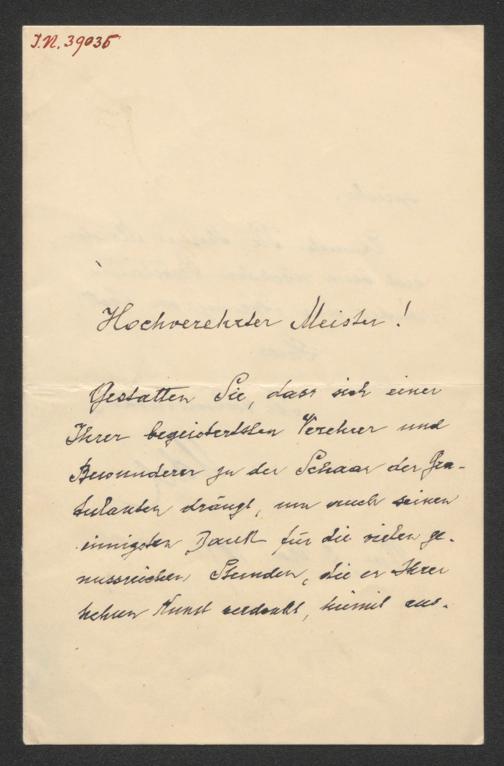 I.N. 39035
Hochverehrter Meister!
Gestatten Sie, dass sich einer
Ihrer begeistertsten Verehrer und
Bewunderer zu der Schaar der Gra-
tulanten drängt, um auch seinen
innigsten Dank für die vielen ge-
nussreichen Stunden, die er Ihrer
hehren Kunst verdankt, hiemit aus-